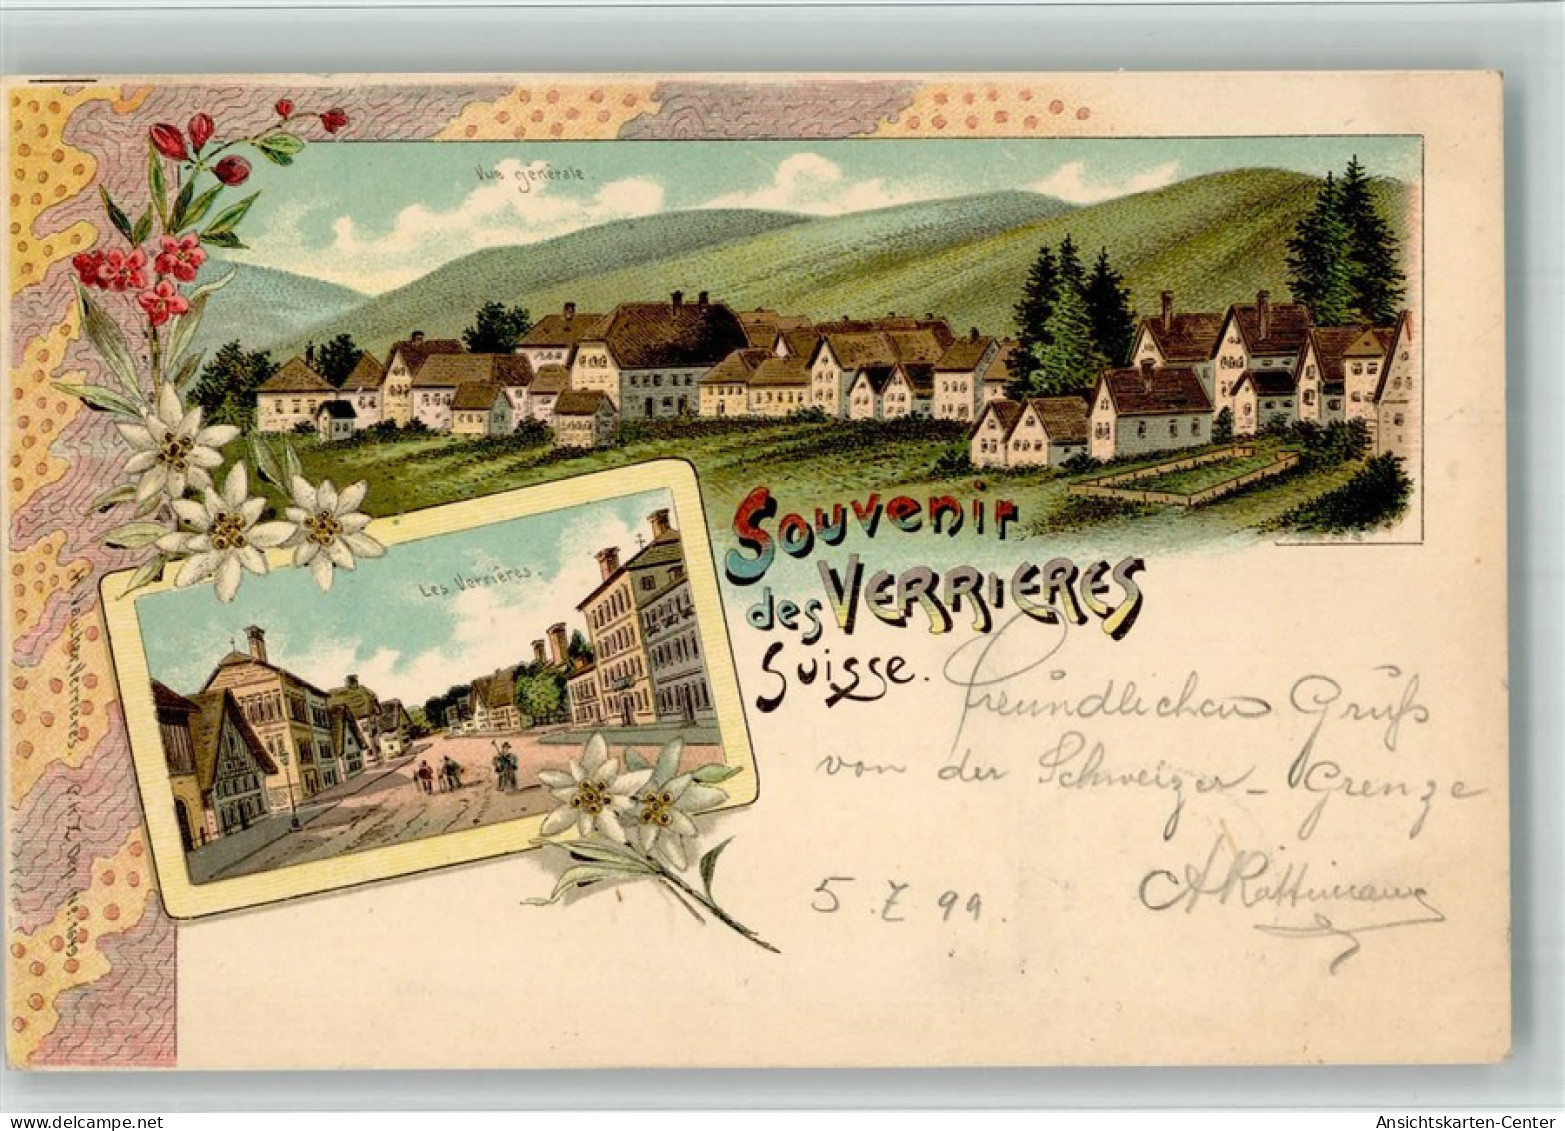 Vue générale.
Les Verrières.
Souvenir
des VERRIERES
Suisse.
Freundlichen Gruß
von der Schweizer-Grenze
5. 7. 99.
www.delcampe.net
Ansichtskarten-Center